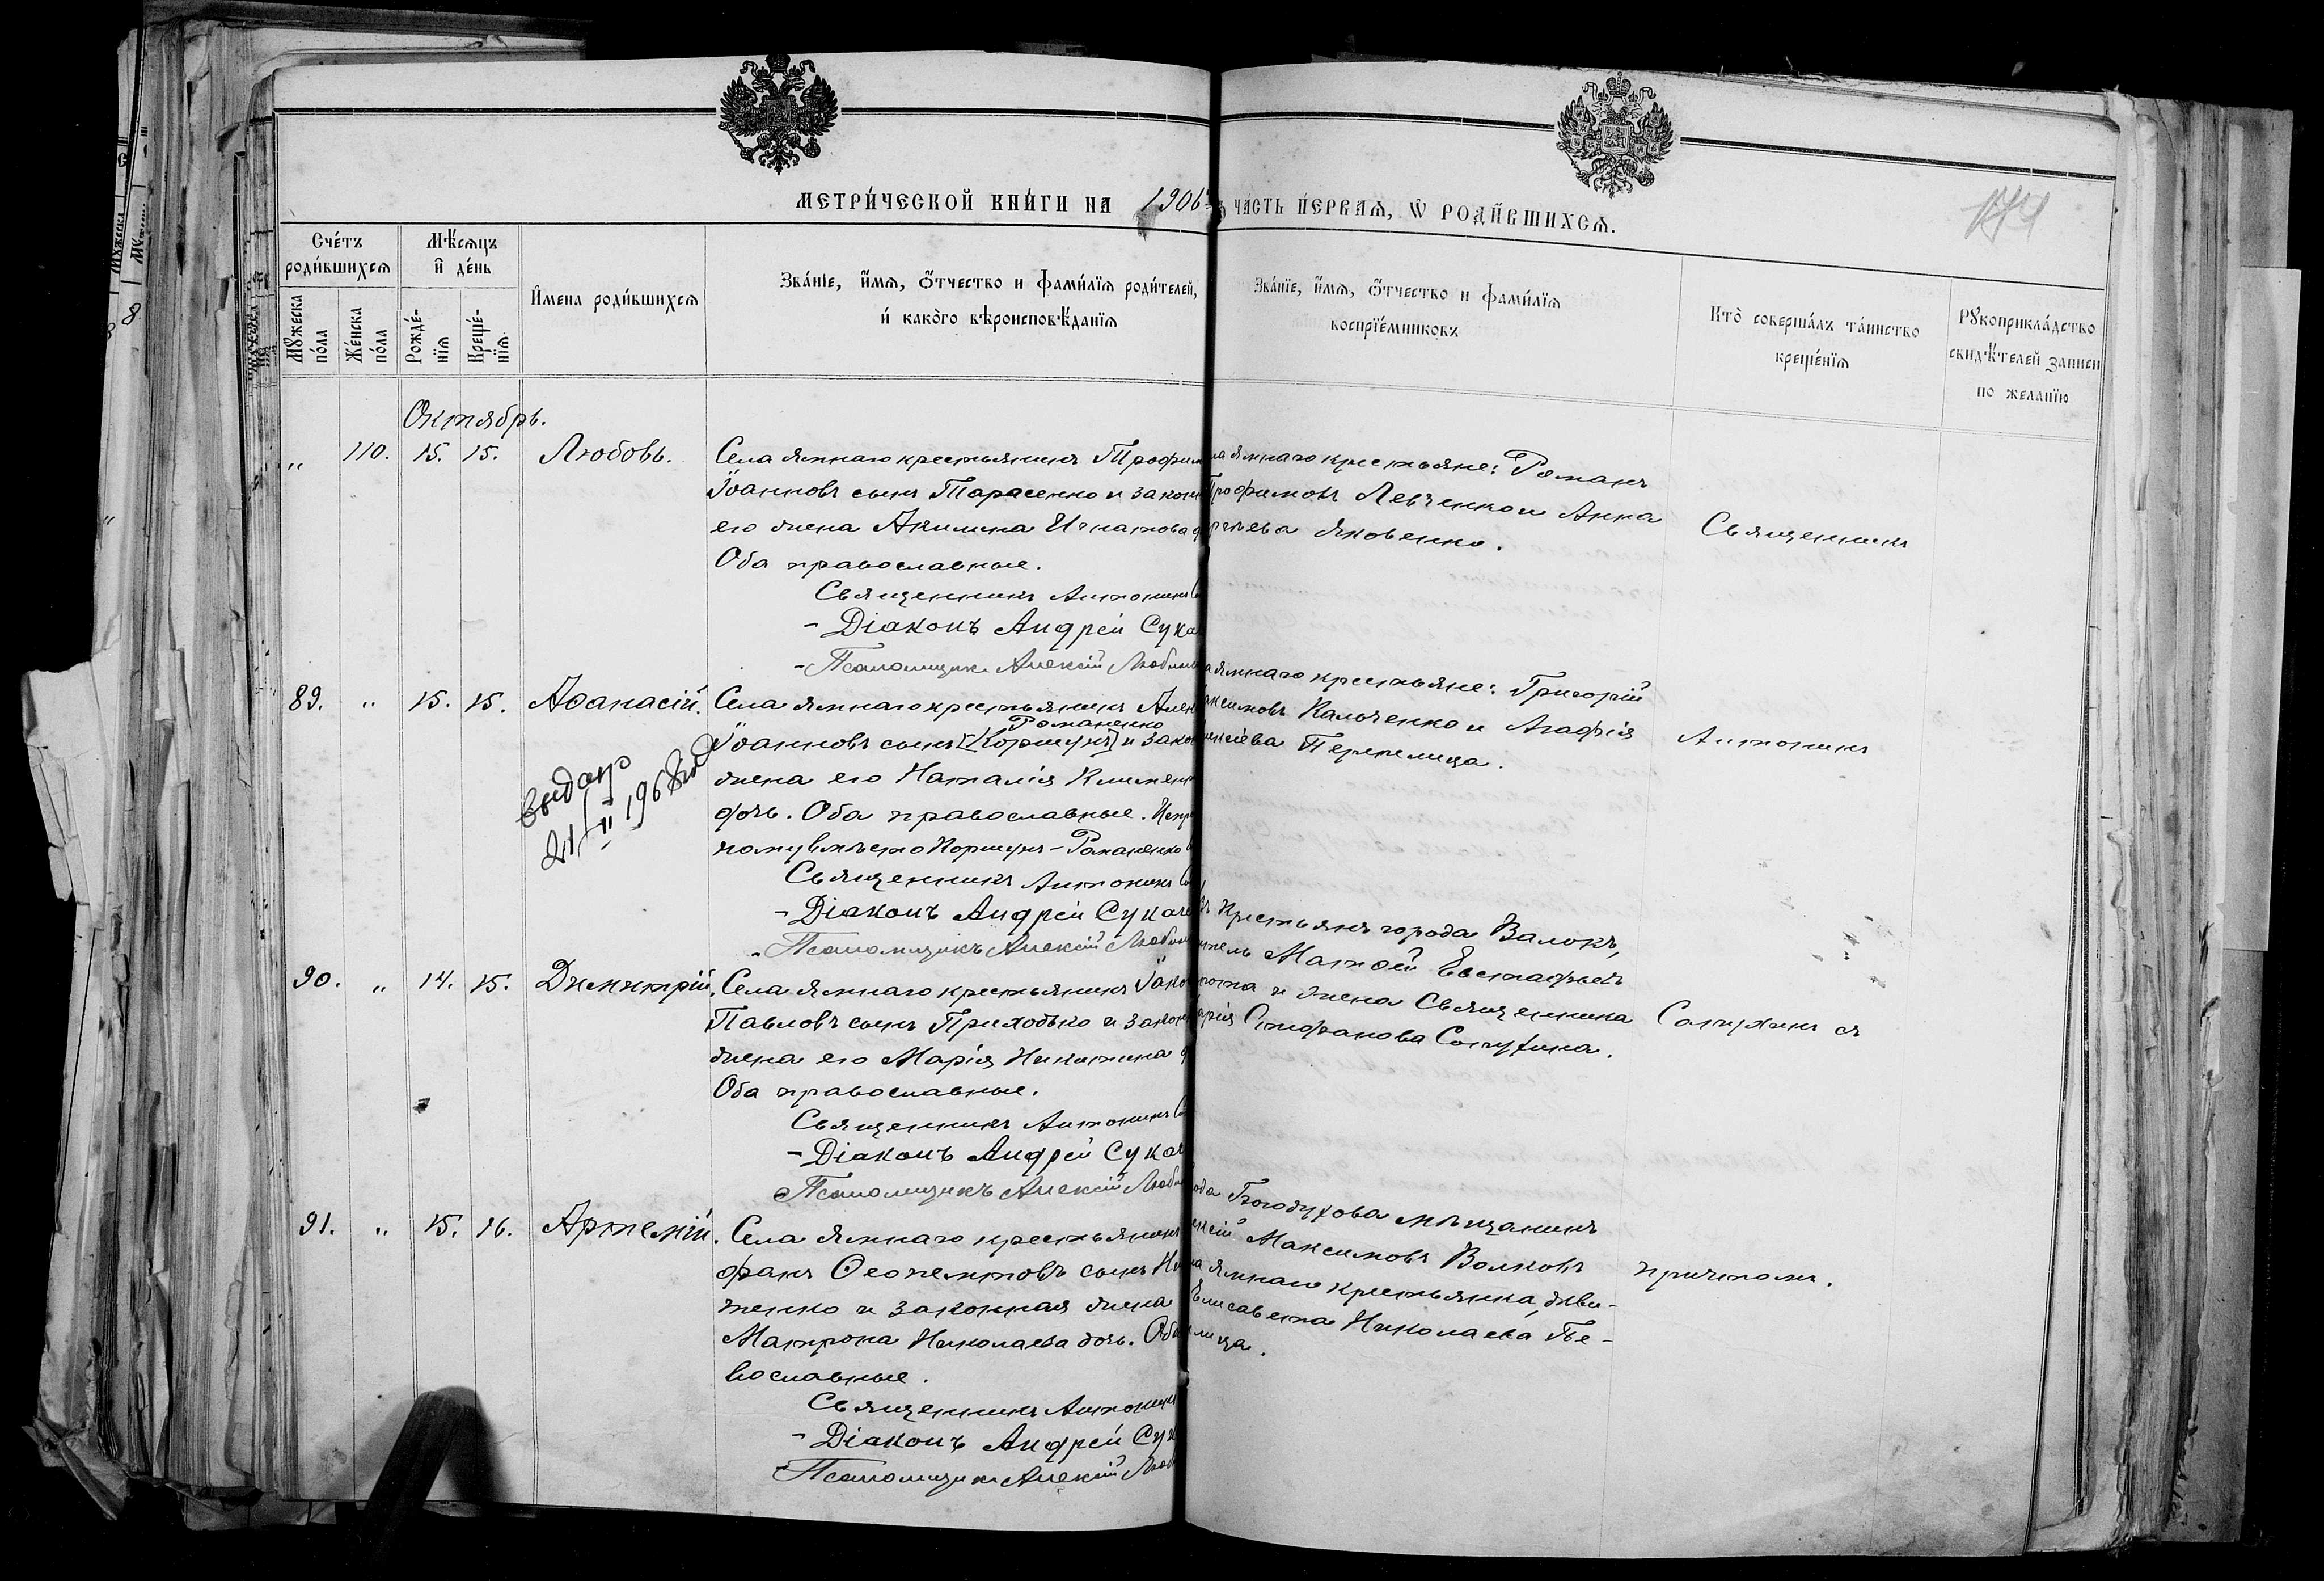 МЕТРИ́ЧЕСКОЙ КНИ́ГИ НА 1906 г.
ЧАСТЬ ПЕРВАЯ, Ѡ РОДИ́ВШИХСЯ.
174
Сче́тъ родившихся
Мѣсяцъ и де́нь
И́мена роди́вшихся
Зва́ніе, и́мя, о́тчество и фами́лія роди́телей,
и како́го вѣроисповѣ́данія
Зва́ніе, и́мя, о́тчество и фами́лія
воспріе́мниковъ
Кто̀ соверша́лъ та́инство
креще́нія
Рукоприкла́дство
свидѣ́телей записи
по желанію
Му́жеска по́ла
Же́нска по́ла
Рожде́нія
Креще́нія
Октябрь.
„ 110. 15. 15. Любовь.
Села Ямнаго крестьянинъ Трофим
Іоанновъ сынъ Тарасенко и закон
его жена Акилина Игнатова д
Оба православные.
Священникъ Антонинъ
- Діаконъ Андрей Сука
- Псаломщикъ Алексій Любиц
ла Ямнаго крестьяне: Романъ
Трофимовъ Левченко и Анна
Яковенко.
Священникъ
89. „ 15. 15. Аѳанасій.
Села Ямнаго крестьянинъ Алек
Романенко
Іоанновъ сынъ [Коршунъ] и зако
жена его Наталія Климент
дочь. Оба православные. Испр
ному вмѣсто Коршунъ - Романенко в
Священникъ Антонинъ Со
- Діаконъ Андрей Сукаче
- Псаломщикъ Алексій Любиц
выдано
21/II 1968 год
а Ямнаго крестьяне: Григорій
аксимовъ Кальченко и Агафія
Перепелица.
Антонинъ
90. „ 14. 15. Димитрій.
Села Ямнаго крестьянинъ Іако
Павловъ сынъ Приходько и закон
жена его Марія Никитина д
Оба православные.
Священникъ Антонинъ Со
- Діаконъ Андрей Сукач
Псаломщикъ Алексій Любиц
крестьянъ города Валокъ,
тель Матѳей Евстафьевъ
и жена Священника
арія Стефанова Сапухина.
Сапухинъ съ
91. „ 15. 16. Артемій.
Села Ямнаго крестьянинъ
фанъ Ѳеопемптовъ сынъ Ни
тенко и законная жена
Матрона Николаева дочь. Оба
вославные.
Священникъ Антонинъ
- Діаконъ Андрей Сук
- Псаломщикъ Алексій Люби
ода Богодухова мѣщанинъ
ексій Максимовъ Волковъ
ла Ямнаго крестьянка, дѣви-
Елисавета Николаева Пе-
лица.
причтомъ.